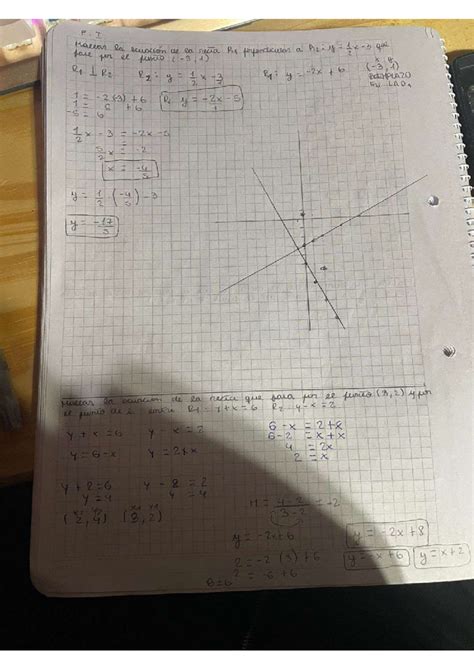 Hallar la ecuación de la recta R1 perpendicular a R2: y = 1/2 x - 3 que
pase por el punto (-3, 1)
R1 ⊥ R2 R2: y = 1/2 x - 3 R1: y = -2x + b (-3, 1)
REEMPLAZO
EN LA R1
1 = -2(-3) + b
1 = 6 + b
-5 = b
R1 y = -2x - 5
1/2 x - 3 = -2x - 5
5/2 x = -2
x = -4/5
y = 1/2 (-4/5) - 3
y = -17/5
Hallar la ecuación de la recta que pasa por el punto (3, 2) y por
el punto de entre R1 = y + x = 6 R2 = y - x = 2
y + x = 6 y - x = 2
y = 6 - x y = 2 + x
6 - x = 2 + x
6 - 2 = x + x
4 = 2x
2 = x
y + 2 = 6 y - 2 = 2
y = 4 y = 4
(2, 4) (3, 2)
M = 4 - 2 / 3 - 2 = -2
y = -2x + b
2 = -2 (3) + b
2 = -6 + b
y = -2x + 8
y = -x + 6
y = x + 2